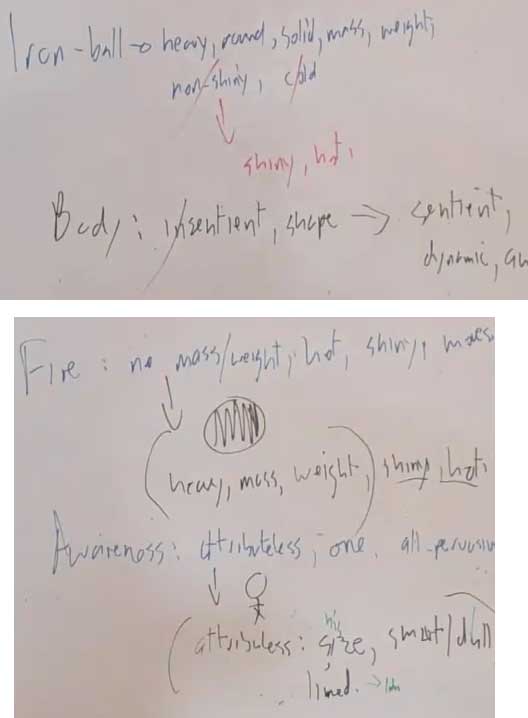 Iron-ball → heavy, round, solid, mass, weight,
non-shiny, cold
shiny, hot,
Body: insentient, shape → sentient,
dynamic, au
Fire: no mass/weight, hot, shiny,
(heavy, mass, weight,) shiny, hot.
Awareness: attributeless, one, all-pervasiv
(attributless: size, smart/dull